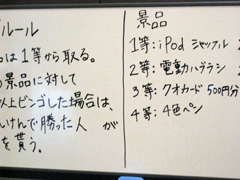 ルール
は1等から取る。
景品に対して
以上ビンゴした場合は、
けんで勝った人が
を貰う。
景品
1等:iPod シャッフル
2等:電動ハブラシ
3等:クオカード 500円分
4等:4色ペン